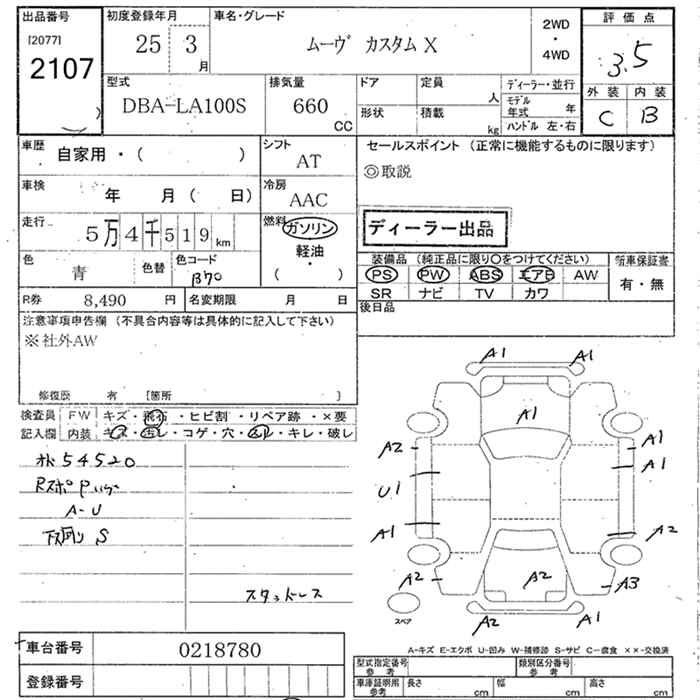 出品番号 初度登録年月 車名・グレード 2WD ・ 4WD 評価点
[2077] 2107
25 3 月 ムーヴ カスタム X 3.5
型式 排気量 ドア 定員 人 ディーラー・並行 外装 内装
DBA-LA100S 660 CC 形状 積載 kg モデル年式 年 ハンドル 左・右 C B
車歴 自家用・( ) シフト AT セールスポイント (正常に機能するものに限ります)
◎取説
車検 年 月( 日) 冷房 AAC
走行 5万4千519km 燃料 ガソリン 軽油・( )
ディーラー出品
色 青 色替 色コード B70
装備品 (純正品に限り○をつけてください) 新車保証書
PS PW ABS エアB AW 有・無
SR ナビ TV カワ
R券 8,490 円 名変期限 月 日 後日品
注意事項申告欄 (不具合内容等は具体的に記入して下さい)
※社外AW
修復歴 有 [箇所 ]
検査員 FW キズ・飛石・ヒビ割・リペア跡・×要
記入欄 内装 キズ・汚レ・コゲ・穴・スレ・キレ・破レ
54520
A-U
下廻り S
スタッドレス
A1 A1
A1
A2 A1
A1
U1
A1 A2
A2 A2 A3
スペア A2 A1
A-キズ E-エクボ U-凹み W-補修跡 S-サビ C-腐食 ××-交換済
車台番号 0218780
登録番号
型式指定番号 参考 類別区分番号 参考
車庫証明用 参考 長さ cm 幅 cm 高さ cm